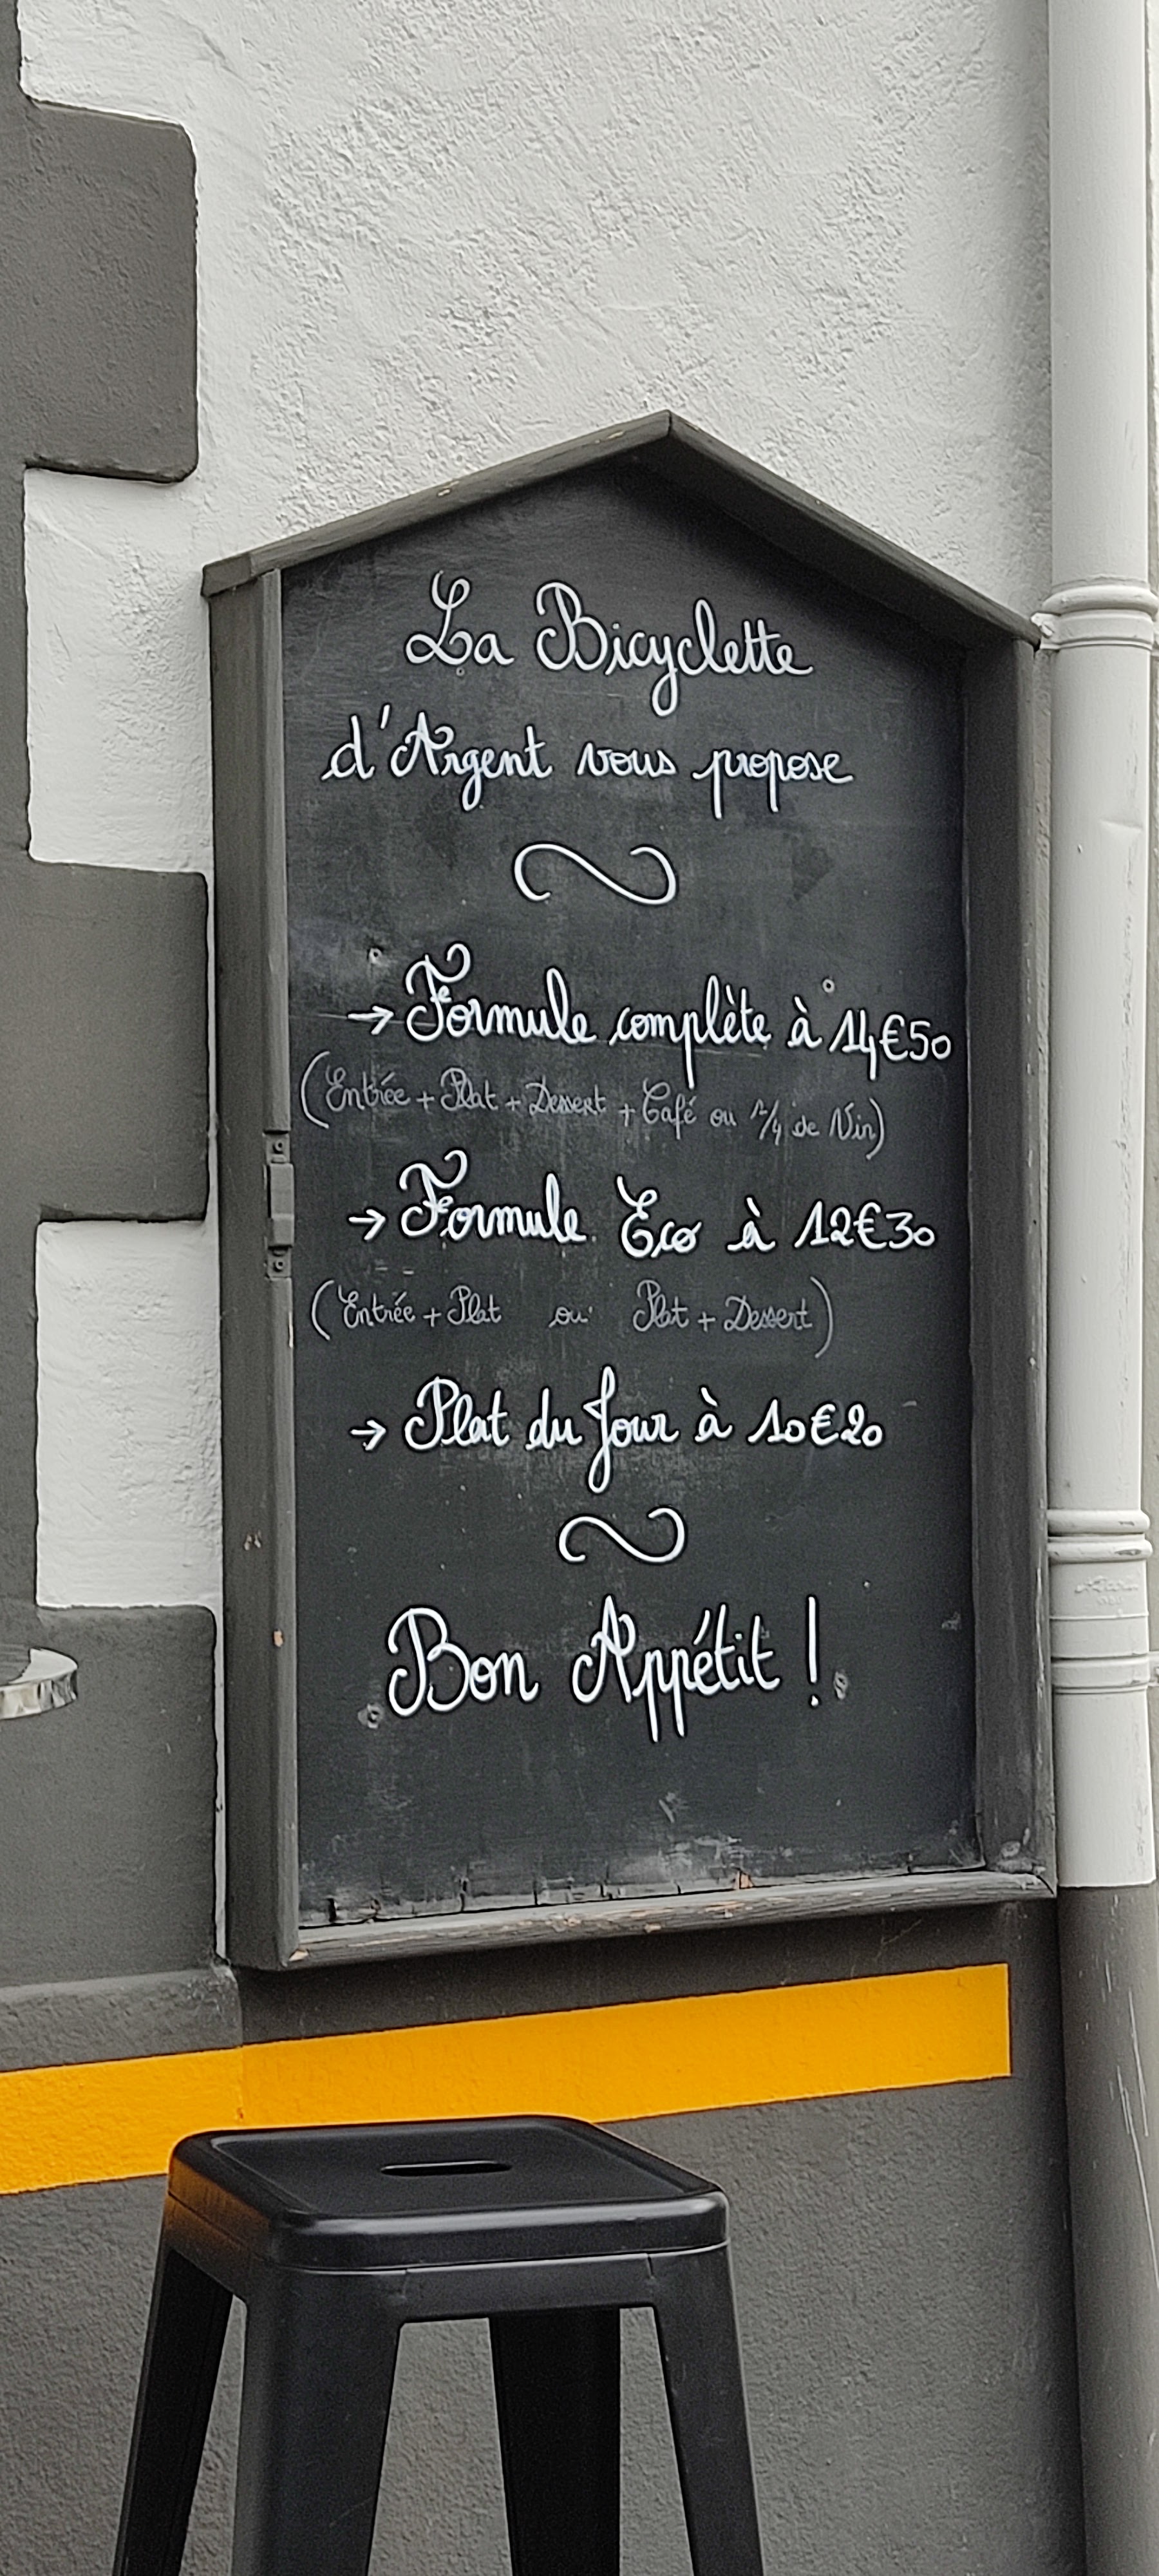 La Bicyclette
d'Argent vous propose
→ Formule complète à 14€50
(Entrée + Plat + Dessert + Café ou 1/4 de Vin)
→ Formule Eco à 12€30
(Entrée + Plat ou Plat + Dessert)
→ Plat du Jour à 10€20
Bon Appétit !